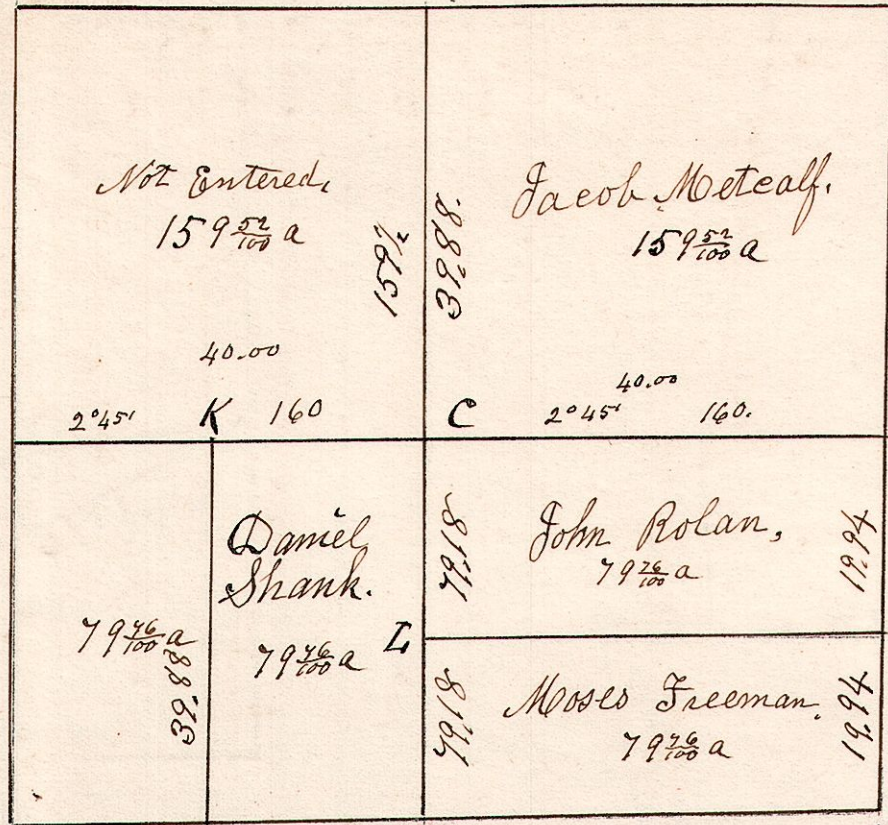 Not Entered,
159 52/100 a
159½
40.00
2°45' K 160
39.88.
Jacob Metcalf.
159 52/100 a
40.00
C 2°45' 160.
79 76/100 a
39.88
Daniel
Shank.
79 76/100 a L
79.18
John Rolan,
79 76/100 a
19.94
79.18
Moses Freeman,
79 76/100 a
19.94